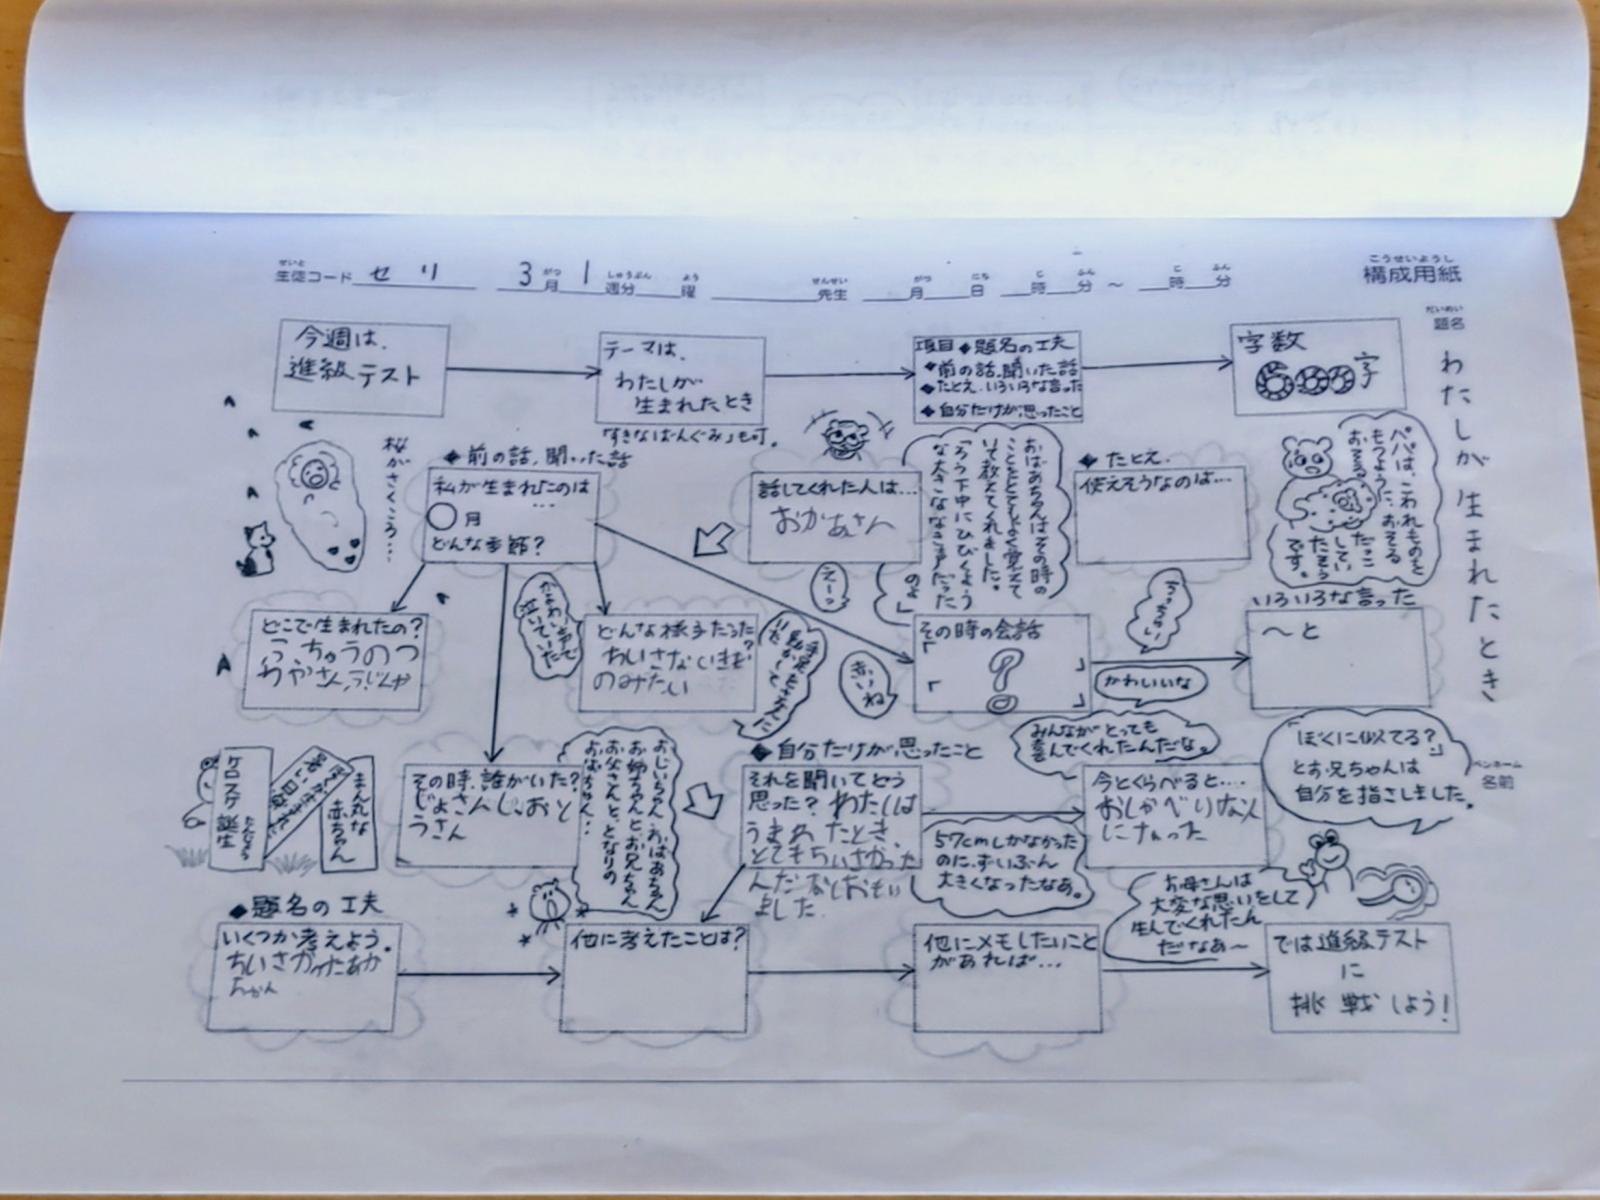 構成用紙
こうせいようし
生徒コード セリ 3月 1週分 曜 先生 月 日 時 分 ～ 時 分
題名
だいめい
わたしが生まれたとき
ペンネーム
名前
今週は、
進級テスト
テーマは、
わたしが
生まれたとき
「すきなばんぐみ」も可。
項目◆題名の工夫
◆前の話、聞いた話
◆たとえ、いろいろな言った
◆自分だけが思ったこと
字数
600字
桜がさくころ…
◆前の話、聞いた話
私が生まれたのは
…
〇月
どんな季節？
話してくれた人は…
おかあさん
えーっ
おばあちゃんはその時の
ことをとてもよく覚えて
いて教えてくれました。
「ろう下中にひびくよう
な大きななき声だった
のよ」
◆たとえ
使えそうなのは…
パパは、こわれものを
もつように、おそる
おそるだっこ
していたそう
です。
どこで生まれたの？
どんな様子だった？
ちいさないきを
のみたい
手足をささえに
動かして
いた
赤いね
その時の会話
「 」
「 」
？
ちっちゃい
かわいいな
いろいろな言った
～と
ケロスケ誕生
たんじょう
暑い日に
ぼくが生まれた
まん丸な
赤ちゃん
その時、誰がいた？
じょさんしとおと
うさん
おじいちゃん、おばあちゃん
お姉ちゃんと、お兄ちゃん
お父さんと、となりの
おばちゃん…
◆自分だけが思ったこと
それを聞いてどう
思った？わたしは
うまれたとき、
とてもちいさかった
んだなとおもい
ました。
57cmしかなかった
のに、ずいぶん
大きくなったなあ。
みんながとっても
喜んでくれたんだな。
今とくらべると…
おしゃべりな人
になった
「ぼくに似てる？」
とお兄ちゃんは
自分を指さしました。
お母さんは
大変な思いをして
生んでくれたん
だなあ～
◆題名の工夫
いくつか考えよう。
ちいさかったあか
ちゃん
他に考えたことは？
他にメモしたいこと
があれば…
では進級テスト
に
挑戦しよう！